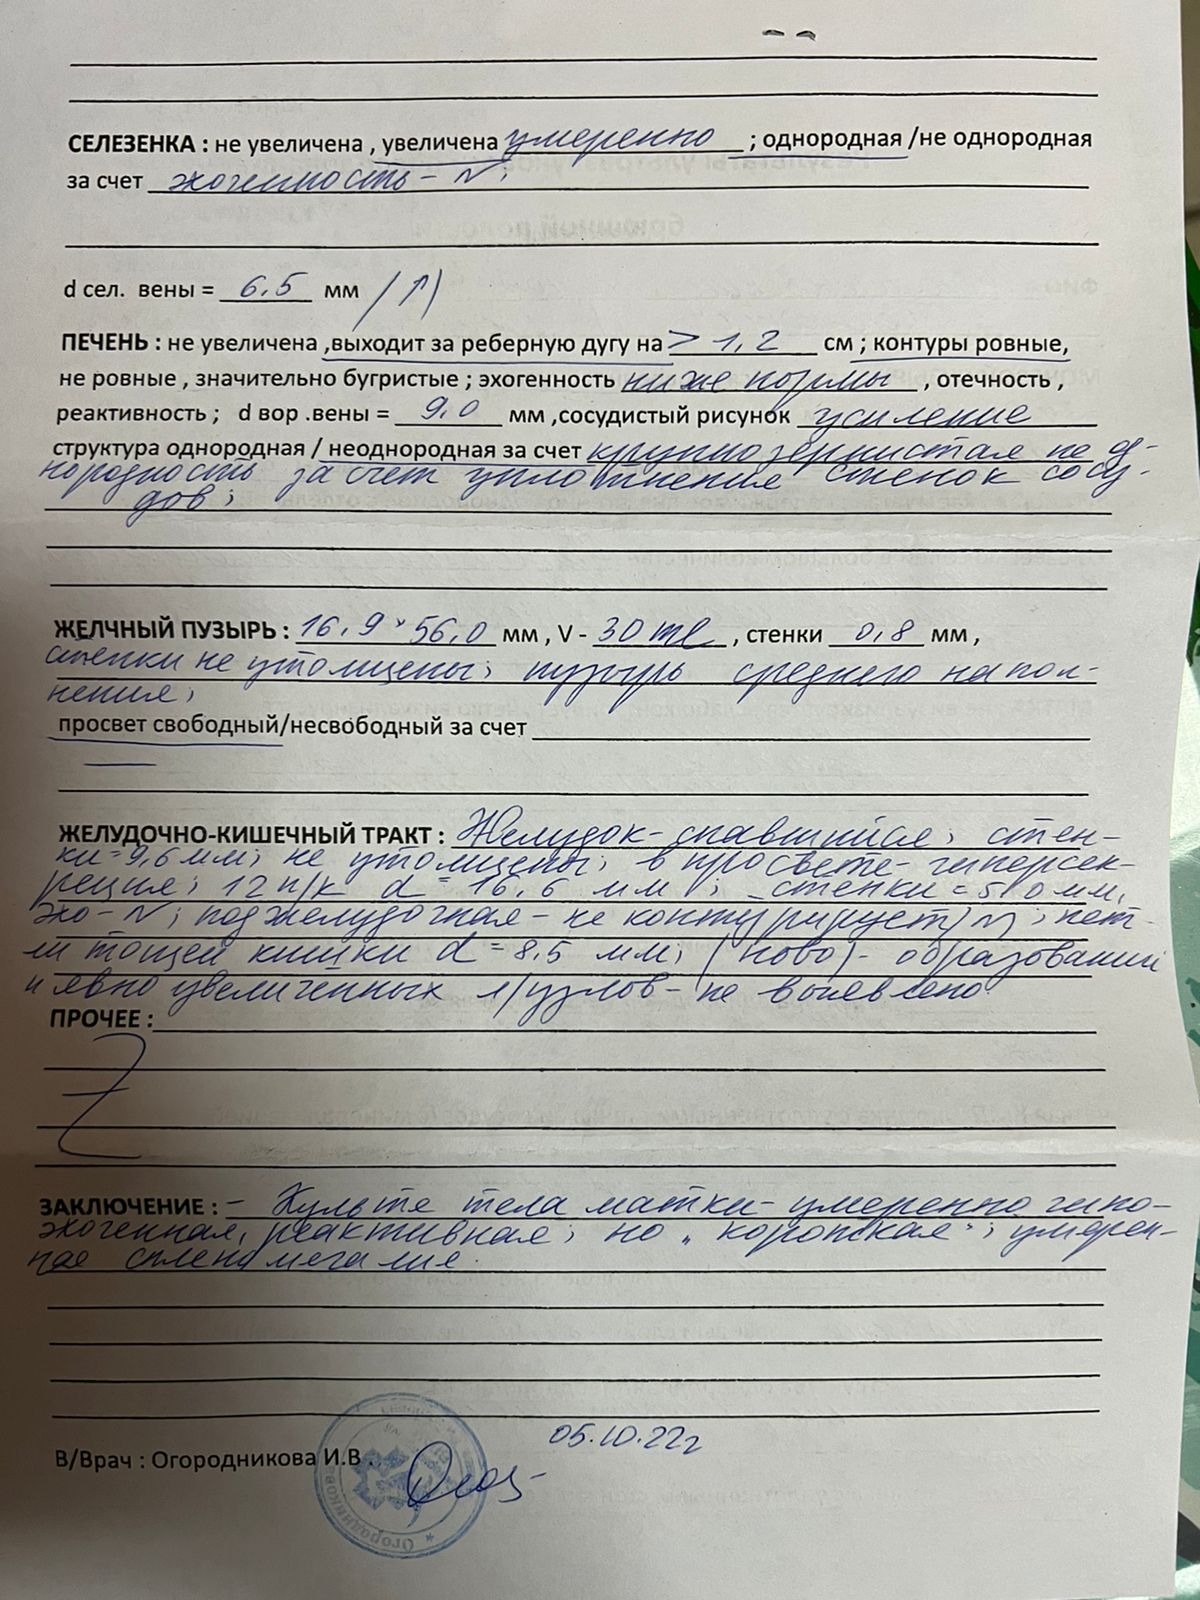 СЕЛЕЗЕНКА : не увеличена , увеличена умеренно ; однородная /не однородная
за счет эхогенность - N ;
d сел. вены = 6.5 мм /↑)
ПЕЧЕНЬ : не увеличена ,выходит за реберную дугу на > 1,2 см ; контуры ровные,
не ровные , значительно бугристые ; эхогенность ниже нормы , отечность ,
реактивность ; d вор .вены = 9,0 мм ,сосудистый рисунок усиление
структура однородная / неоднородная за счет крупнозернистая не од-
нородность за счет уплотнения стенок сосу-
дов ;
ЖЕЛЧНЫЙ ПУЗЫРЬ : 16,9 × 56,0 мм , V - 30 ml , стенки 0,8 мм ,
стенки не утолщены ; пузырь среднего напол-
нения ;
просвет свободный/несвободный за счет
ЖЕЛУДОЧНО-КИШЕЧНЫЙ ТРАКТ : Желудок - спавшийся ; стен-
ки = 9,6 мм ; не утолщены ; в просвете - гиперсек-
реция ; 12 п/к d = 16,6 мм ; стенки = 5,0 мм,
эхо - N ; поджелудочная - не контурирует/N) ; пет-
ли тощей кишки d = 8,5 мм ; (ново) - образований
и явно увеличенных л/узлов - не выявлено
ПРОЧЕЕ :
ЗАКЛЮЧЕНИЕ : - Культя тела матки - умеренно гипо-
эхогенная, реактивная ; но „ короткая " ; умерен-
ная спленомегалия.
05.10.22г
В/Врач : Огородникова И.В .
Огородникова